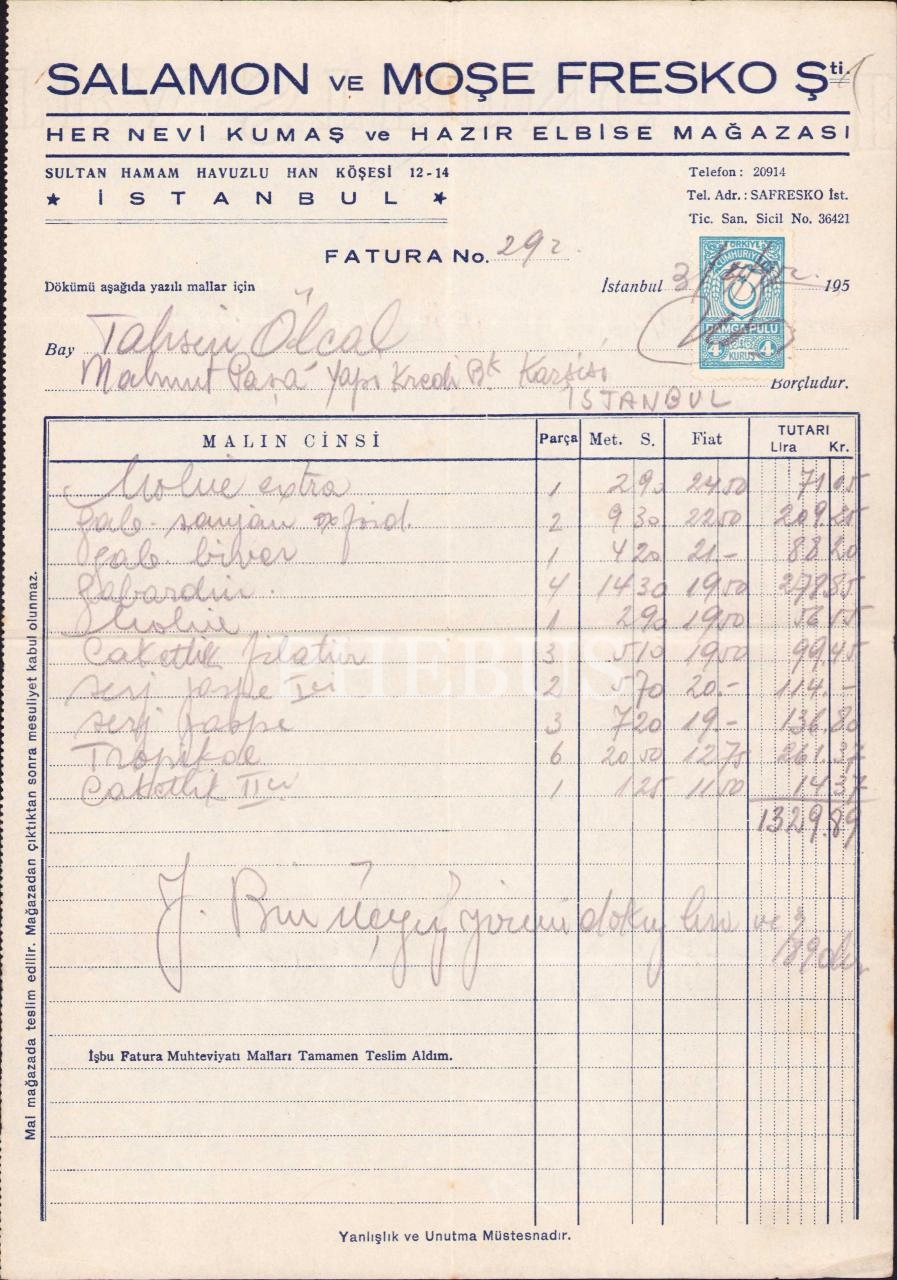 SALAMON VE MOŞE FRESKO Şti.
HER NEVİ KUMAŞ ve HAZIR ELBİSE MAĞAZASI
SULTAN HAMAM HAVUZLU HAN KÖŞESİ 12-14
★ İSTANBUL ★
Telefon: 20914
Tel. Adr.: SAFRESKO İst.
Tic. San. Sicil No. 36421
FATURA No. 292
TÜRKİYE CUMHURİYETİ
DAMGA PULU
4 KURUŞ 4
Dökümü aşağıda yazılı mallar için
İstanbul 3/ 195
Bay Tahsin Ölcal
Mahmut Paşa Yapı Kredi Bk Karşısı
İSTANBUL
Borçludur.
MALIN CİNSİ Parça Met. S. Fiat TUTARI Lira Kr.
extra 1 2 90 24 50 71.05
Gab. şanjan oxford. 2 9 30 22 50 209.25
Gab. biver 1 4 20 21.- 88 20
Gabardin. 4 14 30 19 50 278.85
1 2 90 19 50 56 55
Caketlik 3 5 10 19 50 99.45
serj jaspe I ci 2 5 70 20.- 114.-
serj jaspe 3 7 20 19.- 136.80
Tropikal 6 20 50 12 75 261.37
Caketlik II ci 1 1 25 11 50 14 37
1329.89
Y. Bin üçyüz yirmi dokuz lira ve
89 dur
İşbu Fatura Muhteviyatı Malları Tamamen Teslim Aldım.
Mal mağazada teslim edilir. Mağazadan çıktıktan sonra mesuliyet kabul olunmaz.
Yanlışlık ve Unutma Müstesnadır.
PHEBUS